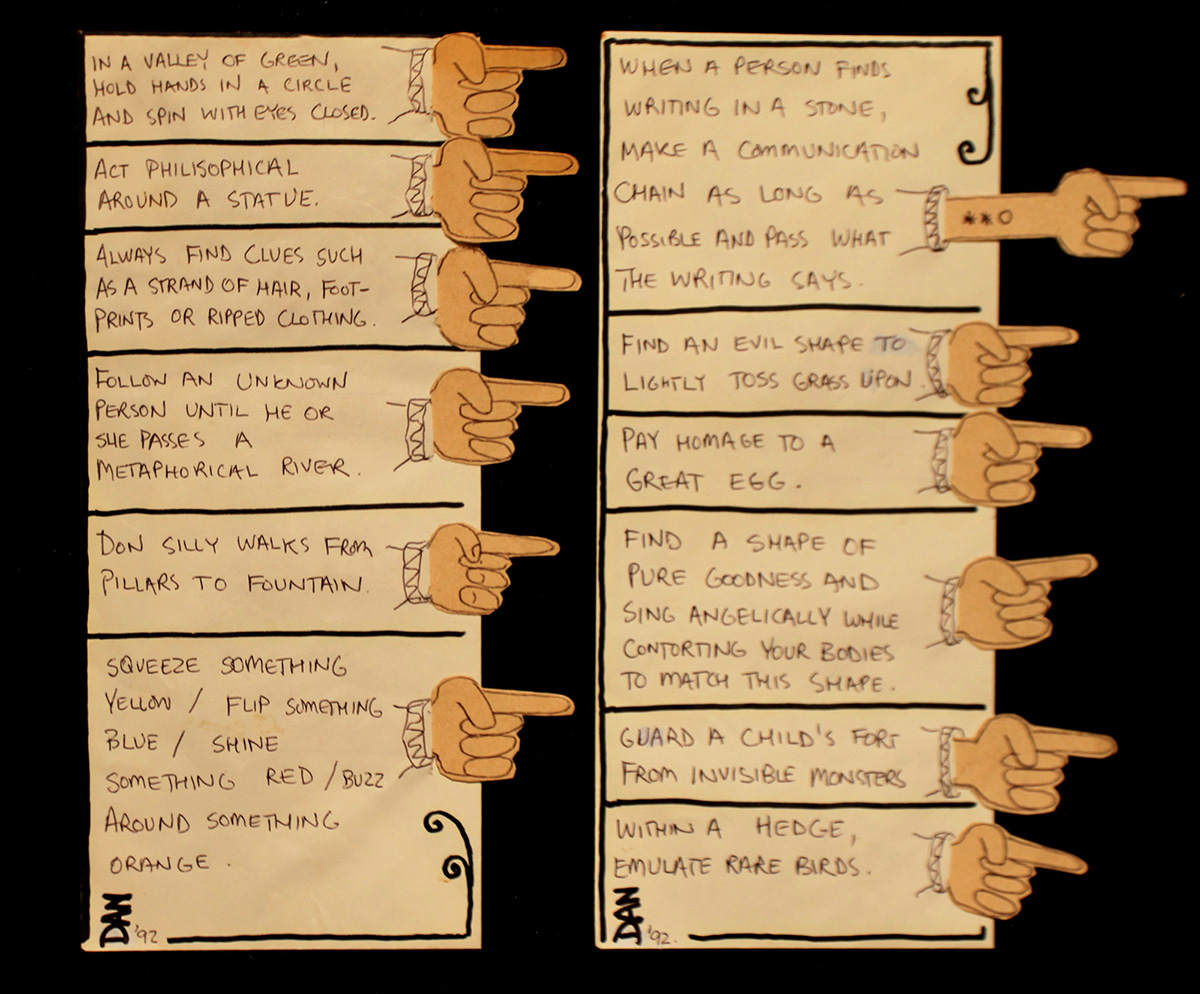 IN A VALLEY OF GREEN,
HOLD HANDS IN A CIRCLE
AND SPIN WITH EYES CLOSED.
ACT PHILISOPHICAL
AROUND A STATUE.
ALWAYS FIND CLUES SUCH
AS A STRAND OF HAIR, FOOT-
PRINTS OR RIPPED CLOTHING.
FOLLOW AN UNKNOWN
PERSON UNTIL HE OR
SHE PASSES A
METAPHORICAL RIVER.
DON SILLY WALKS FROM
PILLARS TO FOUNTAIN.
SQUEEZE SOMETHING
YELLOW / FLIP SOMETHING
BLUE / SHINE
SOMETHING RED / BUZZ
AROUND SOMETHING
ORANGE.
DAN '92
WHEN A PERSON FINDS
WRITING IN A STONE,
MAKE A COMMUNICATION
CHAIN AS LONG AS
POSSIBLE AND PASS WHAT
THE WRITING SAYS.
FIND AN EVIL SHAPE TO
LIGHTLY TOSS GRASS UPON.
PAY HOMAGE TO A
GREAT EGG.
FIND A SHAPE OF
PURE GOODNESS AND
SING ANGELICALLY WHILE
CONTORTING YOUR BODIES
TO MATCH THIS SHAPE.
GUARD A CHILD'S FORT
FROM INVISIBLE MONSTERS
WITHIN A HEDGE,
EMULATE RARE BIRDS.
DAN '92.